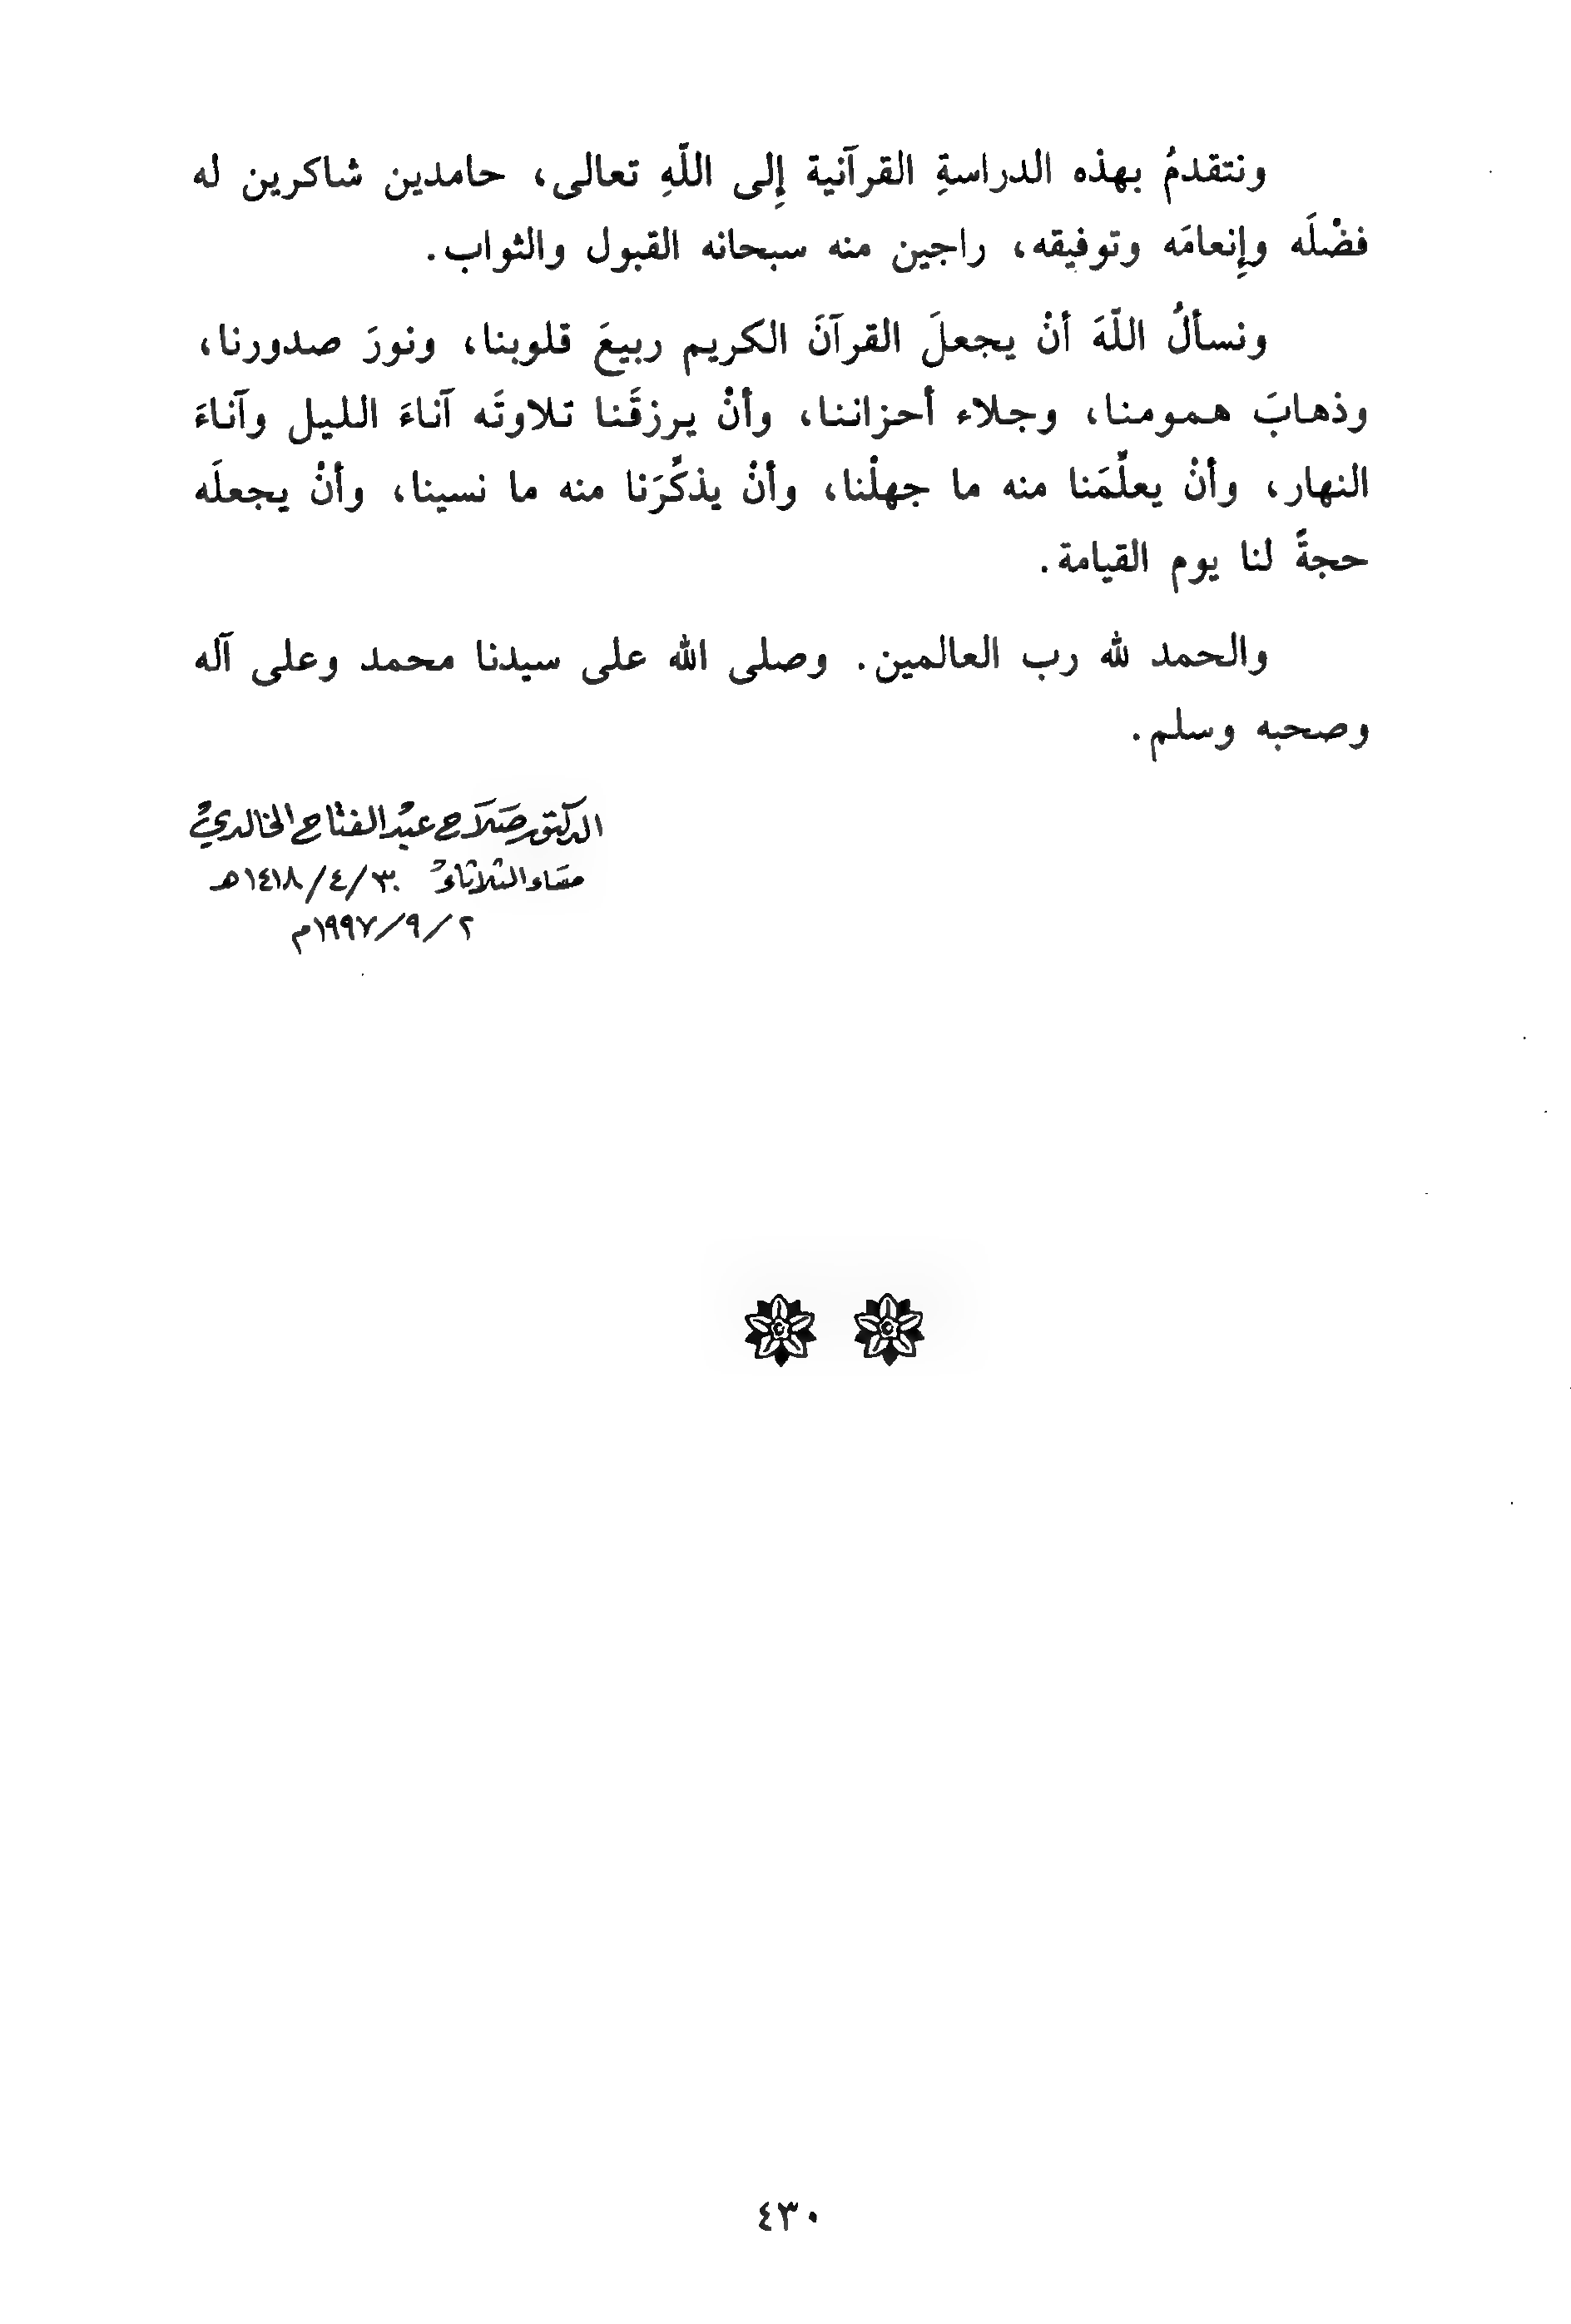 ونتقدمُ بهذه الدراسةِ القرآنية إِلى اللّهِ تعالى، حامدين شاكرين له
فضْلَه وإِنعامَه وتوفيقه، راجين منه سبحانه القبول والثواب.
ونسألُ اللّهَ أنْ يجعلَ القرآنَ الكريم ربيعَ قلوبنا، ونورَ صدورنا،
وذهابَ همومنا، وجلاء أحزاننا، وأنْ يرزقَنا تلاوتَه آناءَ الليل وآناءَ
النهار، وأنْ يعلِّمَنا منه ما جهلْنا، وأنْ يذكِّرَنا منه ما نسينا، وأنْ يجعلَه
حجةً لنا يوم القيامة.
والحمد لله رب العالمين. وصلى الله على سيدنا محمد وعلى آله
وصحبه وسلم.
الدكتور صَلَاح عبْد الفتاح الخالديْ
مسَاء الثلاثاءْ ٣٠/٤/١٤١٨هـ
٢/٩/١٩٩٧م
٤٣٠